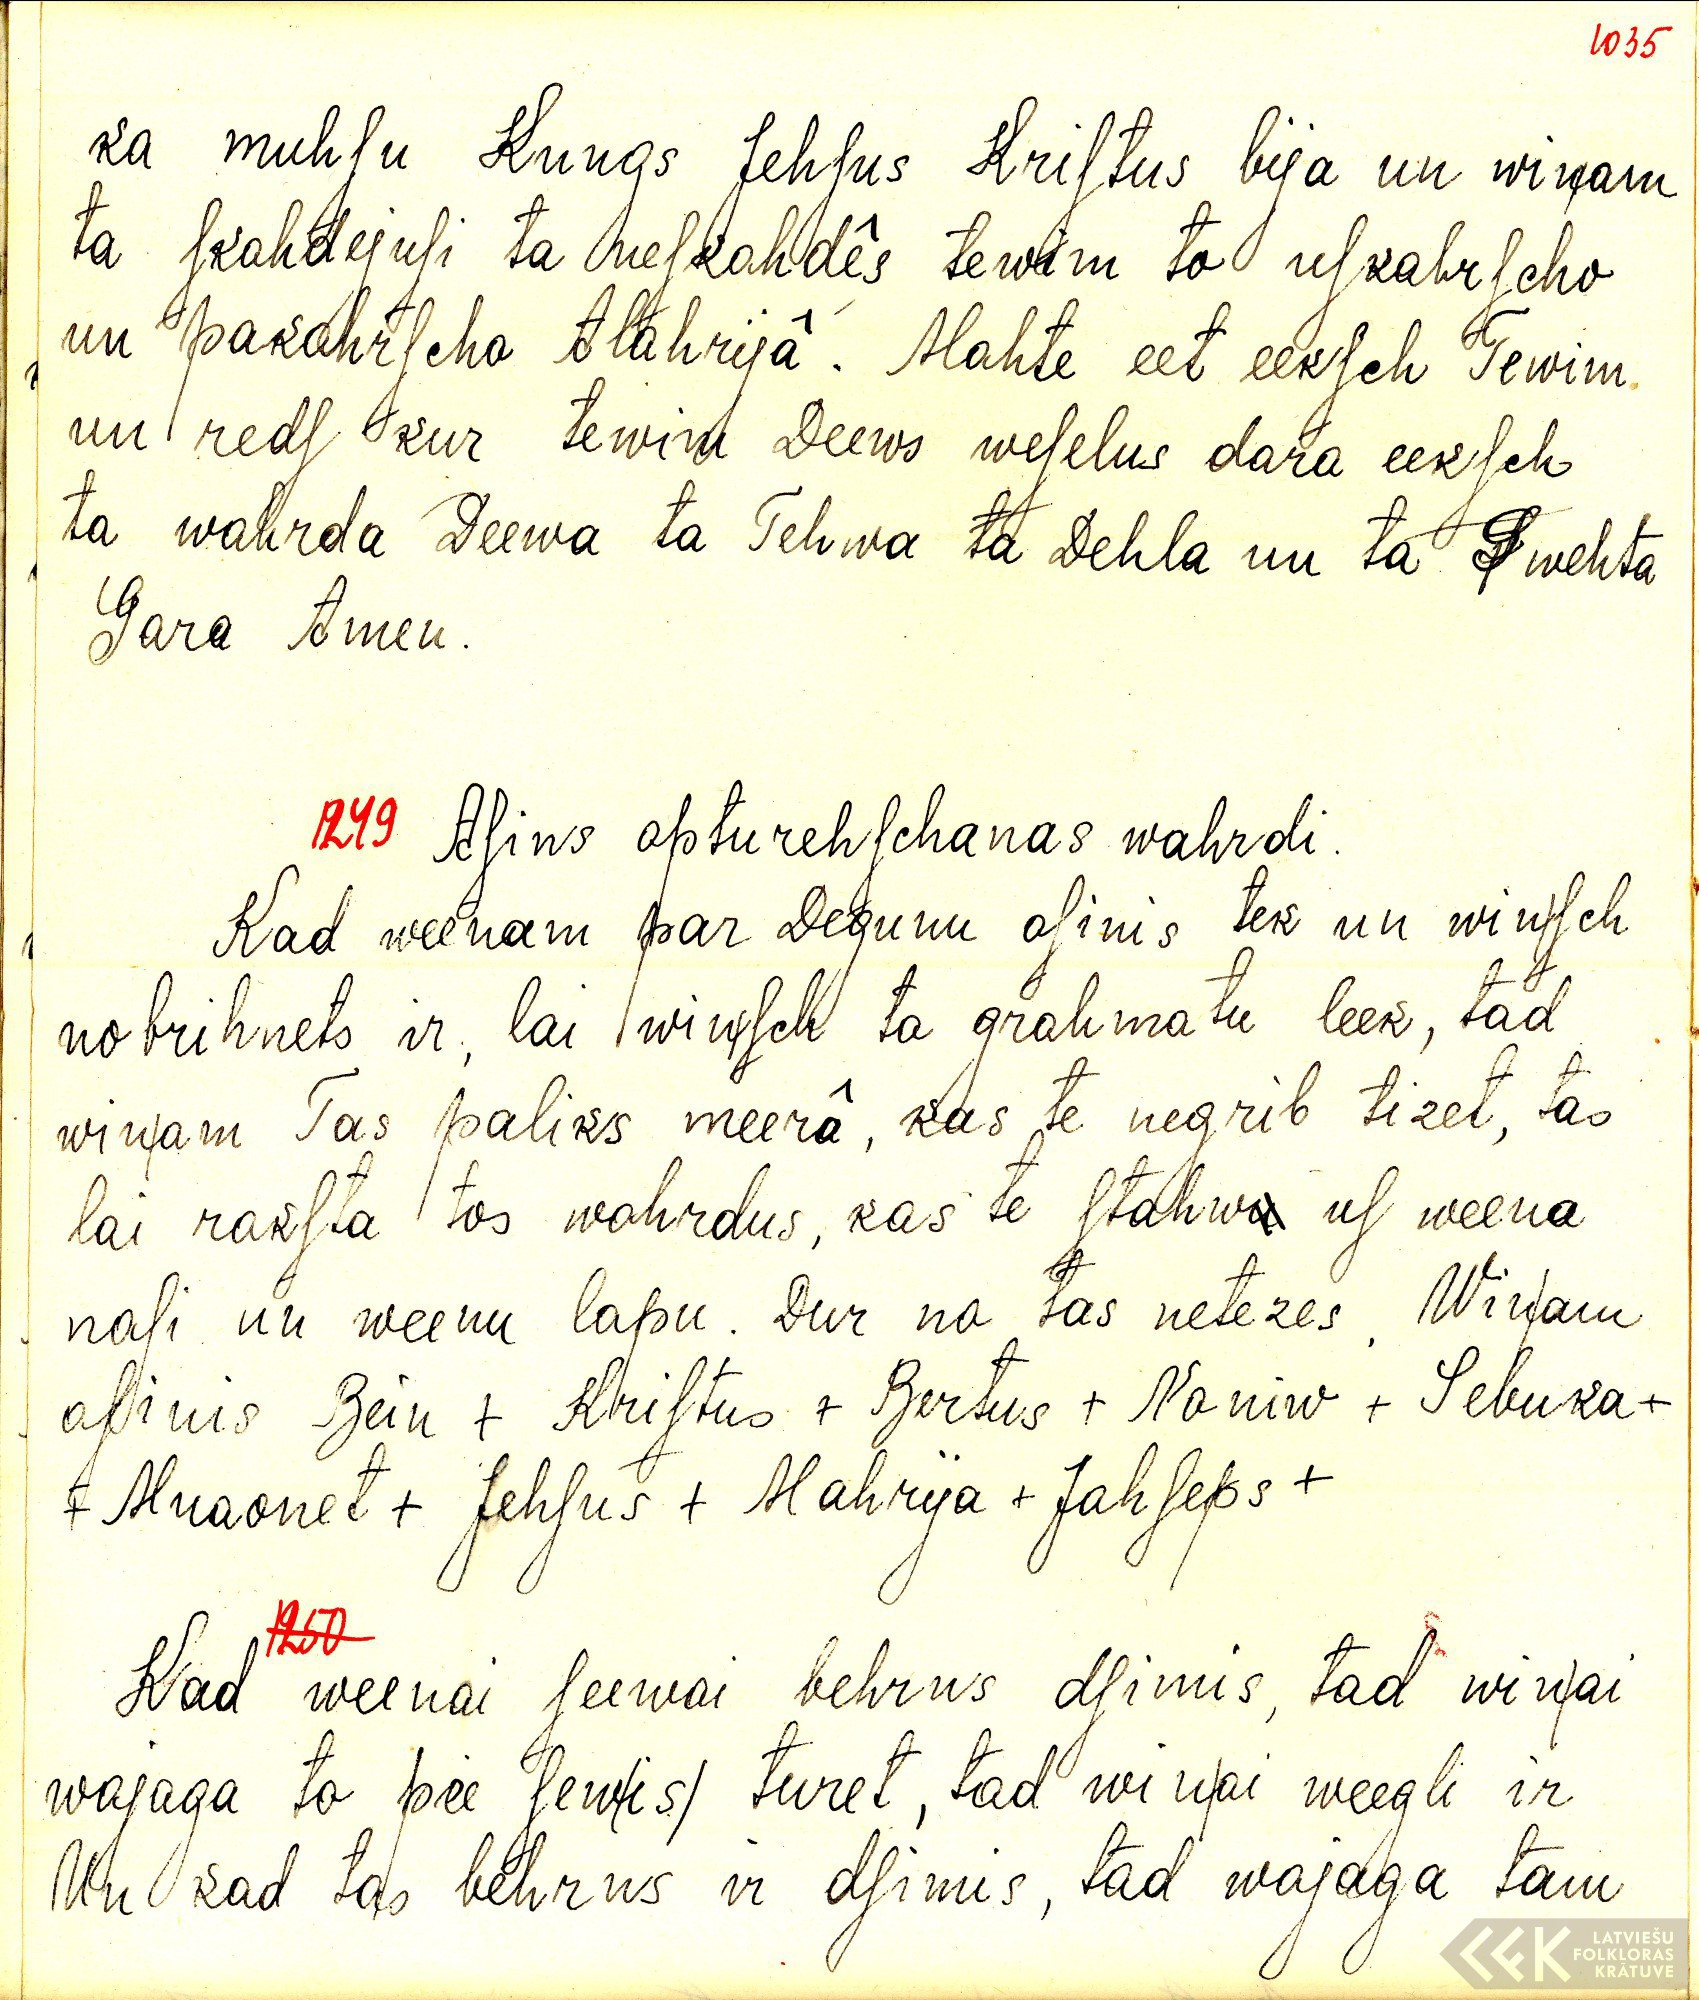 1035
ka muhſu Kungs Jehſus Kriſtus bija un wiņam
ta ſkahdejuſi ta neſkahdês tewim to uſkahrſcho
un pakahrſcho Mahrijâ. Mahte eet eekſch Tewim
un redſ kur tewim Deews weſelus dara eekſch
ta wahrda Deewa ta Tehwa ta Dehla un ta Swehta
Gara Amen.
1249 Aſins apturehſchanas wahrdi.
Kad weenam par Degunu aſinis tek un wiņſch
nobrihnets ir, lai wiņſch ta grahmatu leek, tad
wiņam Tas paliks meerâ, kas te negrib tizet, tas
lai rakſta tos wahrdus, kas te ſtahw uſ weena
naſi un weenu lapu. Dur no tas netezes. Wiņam
aſinis Bein + Kriſtus + Bertus + Noniw + Sebuka +
+ Mnaonet + Jehſus + Mahrija + Jahſeps +
1250
Kad weenai ſeewai behrns dſimis, tad wiņai
wajaga to pie ſew/is/ turet, tad wiņai weegli ir
Un kad tas behrns ir dſimis, tad wajaga tam
LATVIEŠU
FOLKLORAS
KRĀTUVE